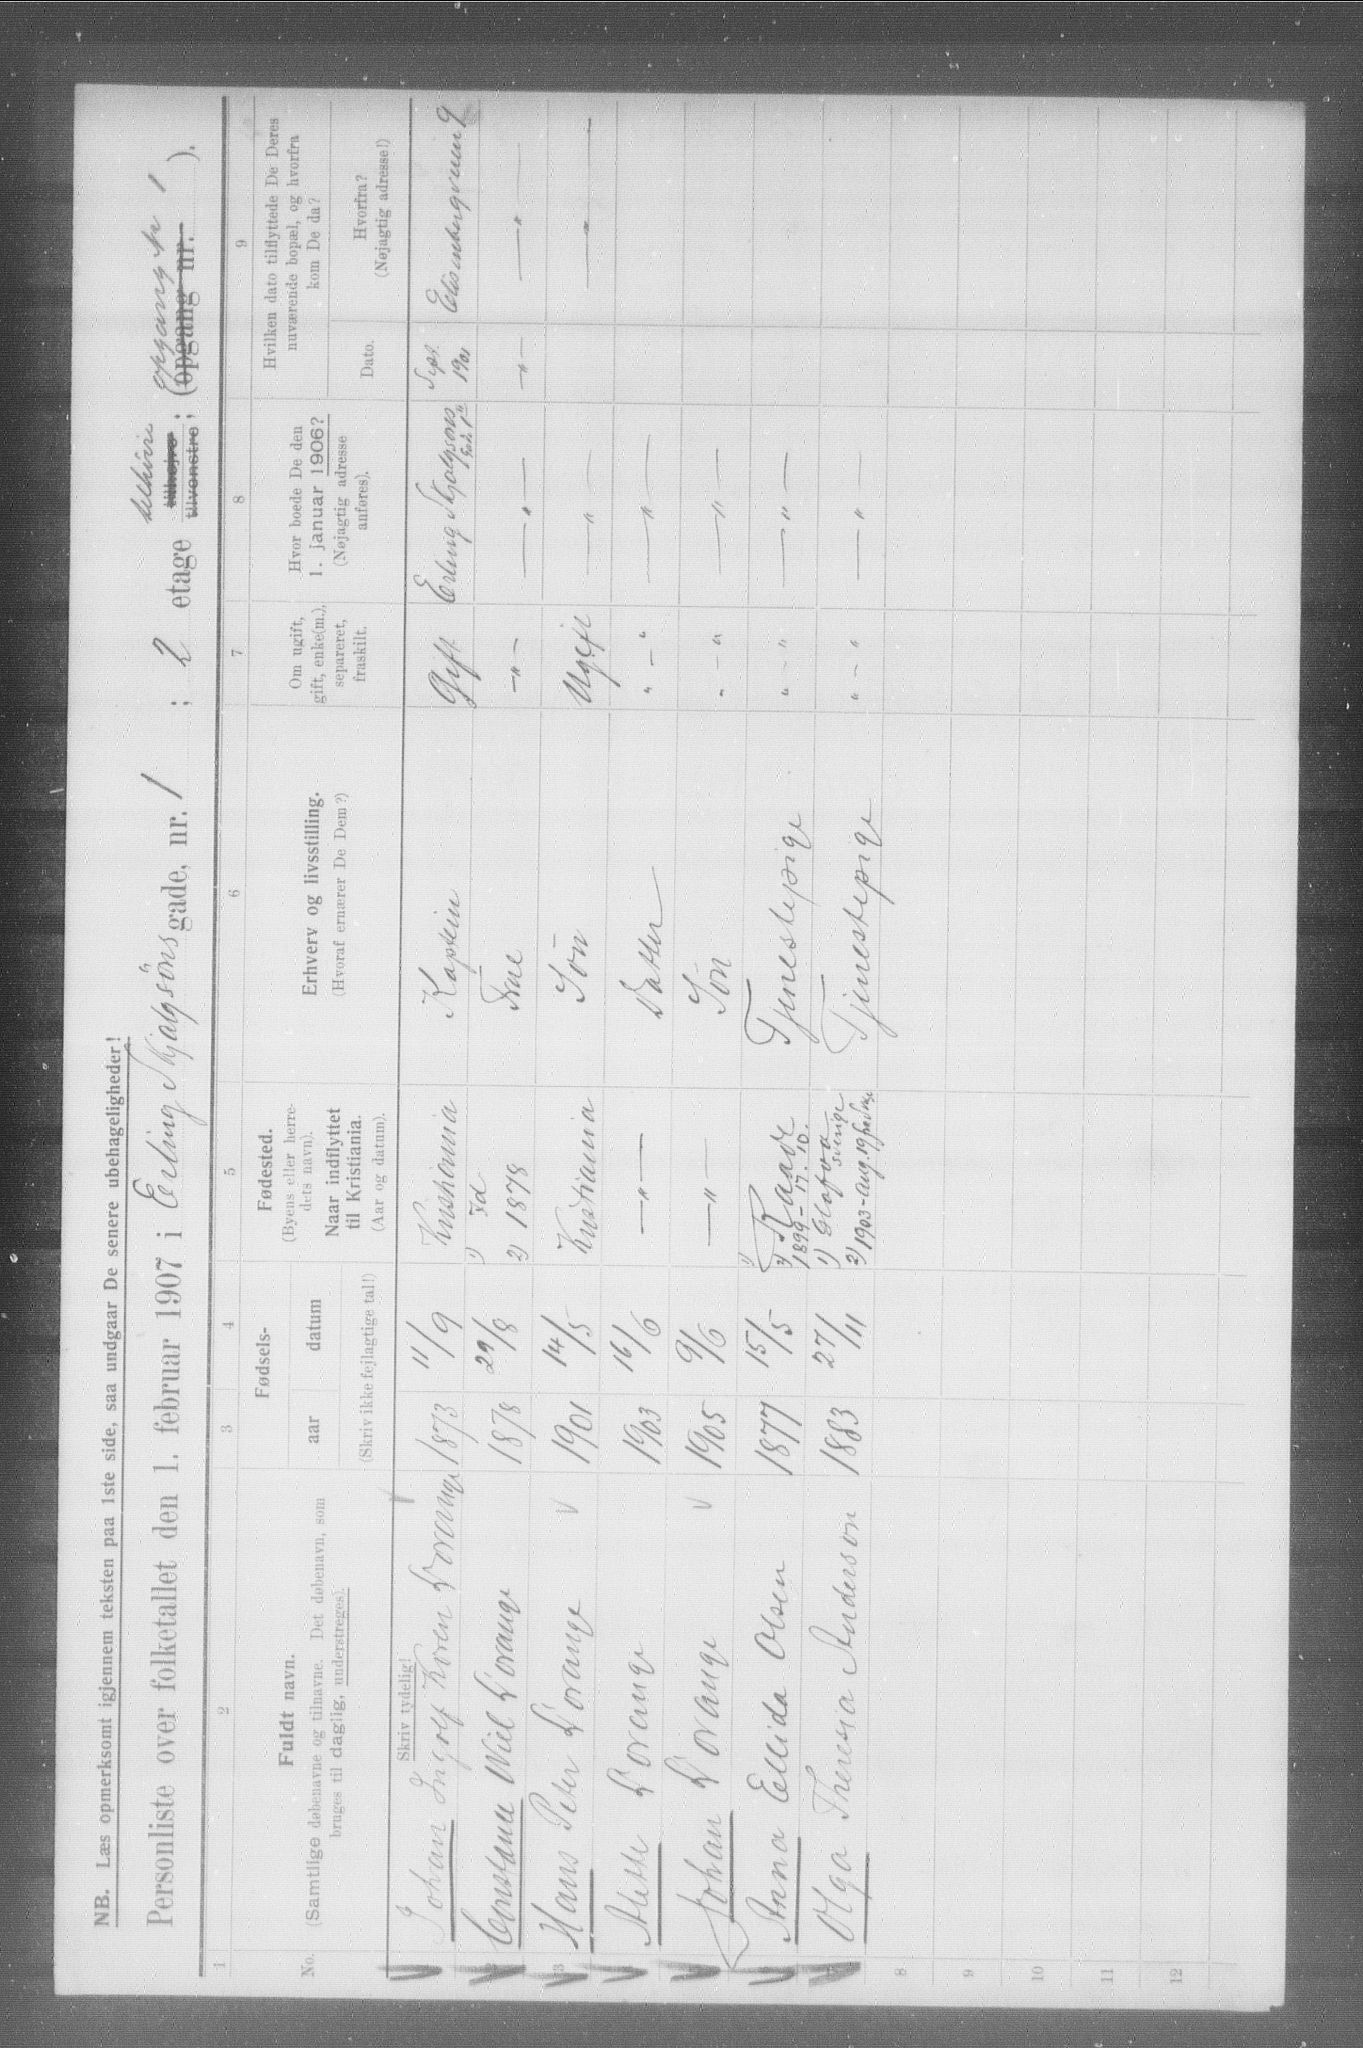 NB. Læs opmerksomt igjennem teksten paa 1ste side, saa undgaar De senere ubehageligheder!
Personliste over folketallet den 1. februar 1907 i Erling Skjalgsöns gade, nr. 1 ; 2 etage tilhöire tilhøjre tilvenstre ; opgang nr 1 (opgang nr. ).
1 2 3 4 5 6 7 8 9
No. Fuldt navn. (Samtlige døbenavne og tilnavne. Det døbenavn, som bruges til daglig, understreges).
Fødsels- aar datum (Skriv ikke fejlagtige tal!)
Fødested. (Byens eller herredets navn). Naar indflyttet til Kristiania. (Aar og datum).
Erhverv og livsstilling. (Hvoraf ernærer De Dem?)
Om ugift, gift, enke(m.), separeret, fraskilt.
Hvor boede De den 1. januar 1906? (Nøjagtig adresse anføres).
Hvilken dato tilflyttede De Deres nuværende bopæl, og hvorfra kom De da? Dato. Hvorfra? (Nøjagtig adresse!)
Skriv tydelig!
Johan Ingolf Koren Dorange 1873 11/9 Kristiania Kaptein Gift Erling Skjalgsöns Sept. 1901 Eilisenbergveien 9
Constance Wiel Dorange 1878 29/8 1) Fd 2) 1878 Frue —"— —"— —"— —"—
3 Hans Peter Dorange 1901 14/5 Kristiania Sön Ugift —"— —"—
Mette Dorange 1903 16/6 —"— Datter "—" —"—
Johan Dorange 1905 9/6 —"— Sön "—" —"—
Anna Ellida Olsen 1877 15/5 1) Raade 2) 1899-17.10. Tjenestepige "—" —"—
Olga Theresia Anderson 1883 27/11 1) Elofova Sverige 2) 1903-aug. 19 Tjenestepige "—" —"—
8
9
10
11
12